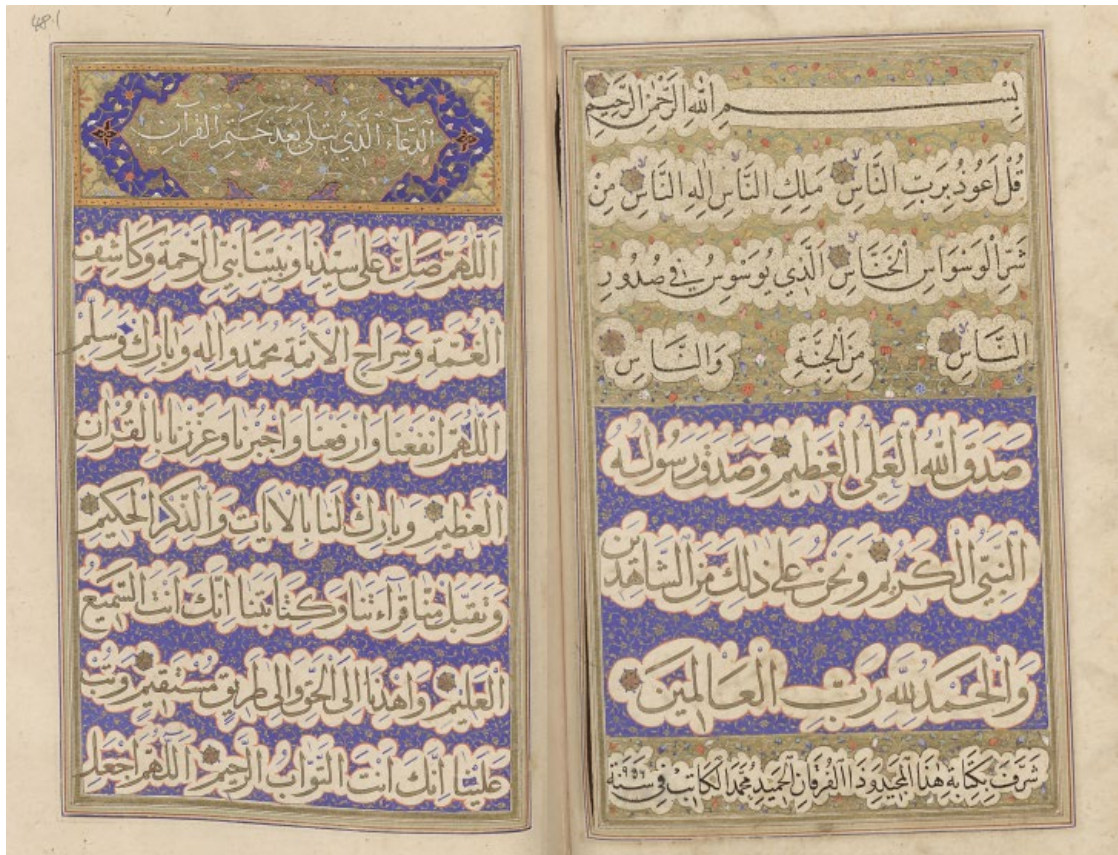 بِسْمِ اللهِ الرَّحْمٰنِ الرَّحِيمِ
قُلْ اَعُوذُ بِرَبِّ النَّاسِ مَلِكِ النَّاسِ اِلٰهِ النَّاسِ مِنْ
شَرِّ الْوَسْوَاسِ الْخَنَّاسِ الَّذِي يُوَسْوِسُ فِي صُدُورِ
النَّاسِ مِنَ الْجِنَّةِ وَالنَّاسِ
صَدَقَ اللهُ الْعَلِيُّ الْعَظِيمُ وَصَدَقَ رَسُولُهُ
النَّبِيُّ الْكَرِيمُ وَنَحْنُ عَلٰى ذٰلِكَ مِنَ الشَّاهِدِينَ
وَالْحَمْدُ لِلّٰهِ رَبِّ الْعَالَمِينَ
شرف بكتابة هذا المجيد و الفرقان الحميد محمد الكاتب في سنة ٩٥٦
الدُّعَاءُ الَّذِي يُتْلٰى بَعْدَ خَتْمِ الْقُرْاٰنِ
اَللّٰهُمَّ صَلِّ عَلٰى سَيِّدِنَا وَنَبِيِّنَا نَبِيِّ الرَّحْمَةِ وَكَاشِفِ
الْغُمَّةِ وَسِرَاجِ الْاُمَّةِ مُحَمَّدٍ وَاٰلِهِ وَبَارِكْ وَسَلِّمْ
اَللّٰهُمَّ انْفَعْنَا وَارْفَعْنَا وَاجْبُرْنَا وَعَزِّزْنَا بِالْقُرْاٰنِ
الْعَظِيمِ وَبَارِكْ لَنَا بِالْاٰيَاتِ وَالذِّكْرِ الْحَكِيمِ
وَتَقَبَّلْ مِنَّا قِرَاءَتَنَا وَكِتَابَتَنَا اِنَّكَ اَنْتَ السَّمِيعُ
الْعَلِيمُ وَاهْدِنَا اِلَى الْحَقِّ وَاِلٰى طَرِيقٍ مُسْتَقِيمٍ وَتُبْ
عَلَيْنَا اِنَّكَ اَنْتَ التَّوَّابُ الرَّحِيمُ اَللّٰهُمَّ اجْعَلِ